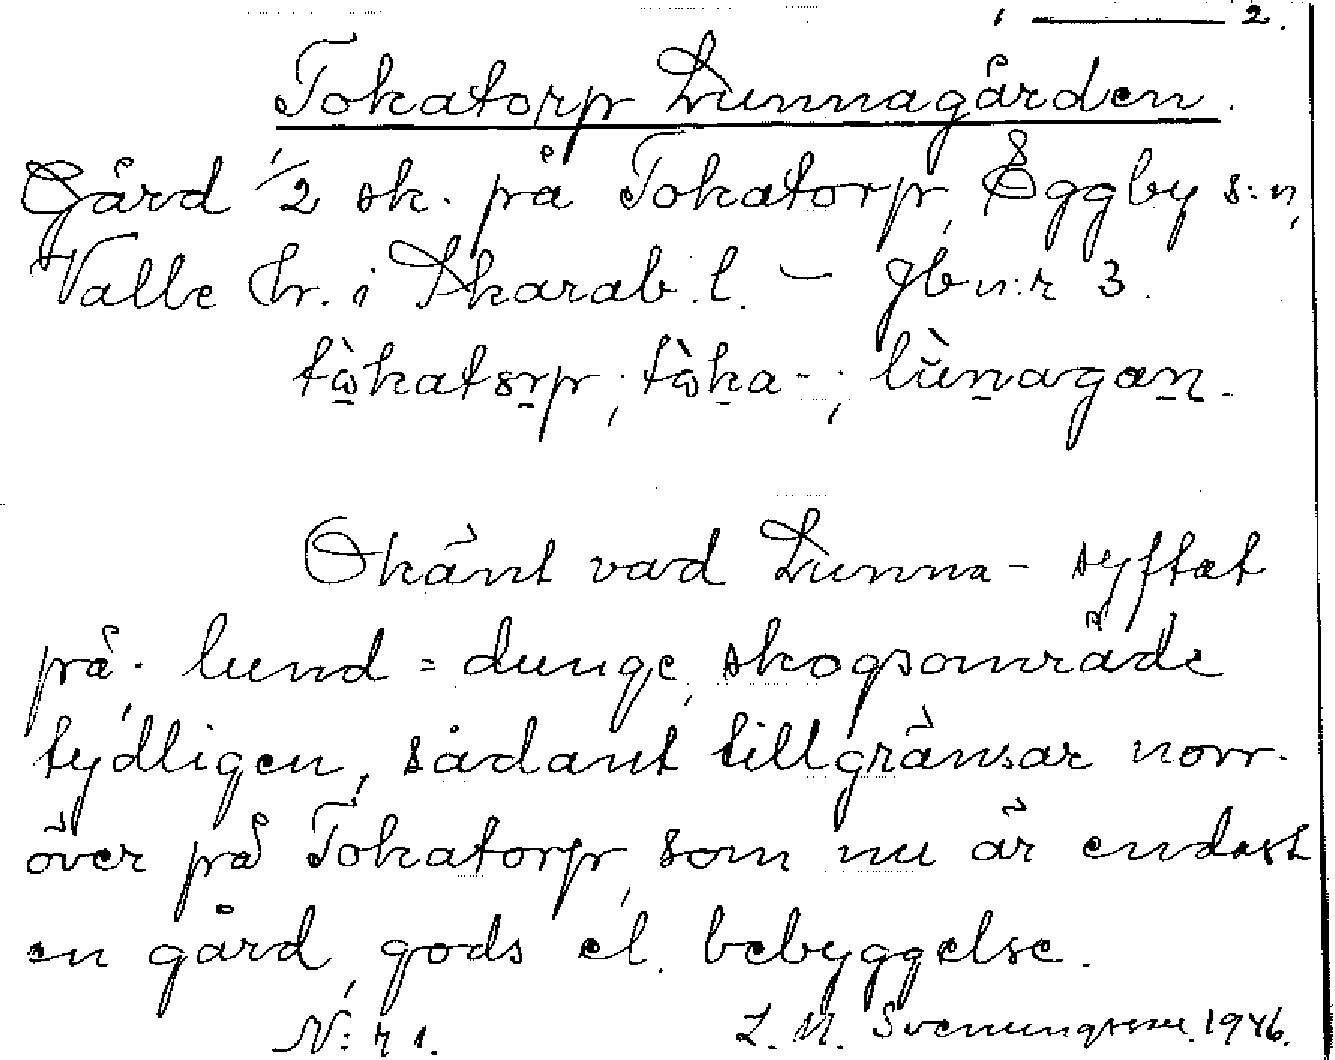 1 ——— 2.
Tokatorp Lunnagården.
Gård 1/2 sk. på Tokatorp, Eggby s:n,
Valle hr. i Skarab. l. – jbn:r 3.
Okänt vad Lunna- syftat
på. lund = dunge, skogsområde
tydligen, sådant tillgränsar norr-
över på Tokatorp, som nu är endast
en gård, gods el. bebyggelse.
N:r 1.
L. M. Svenungsson. 1946.